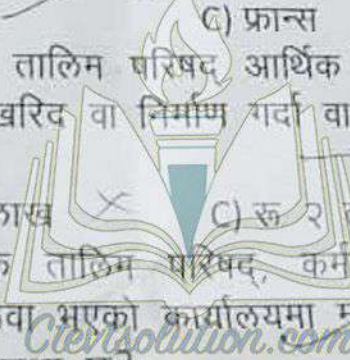 C) फ्रान्स
तालिम परिषद् आर्थिक
खरिद वा निर्माण गर्दा वा
लाख C) रू २
तालिम परिषद्, कर्म
वा भएको कार्यालयमा
Ctevtsolution.com